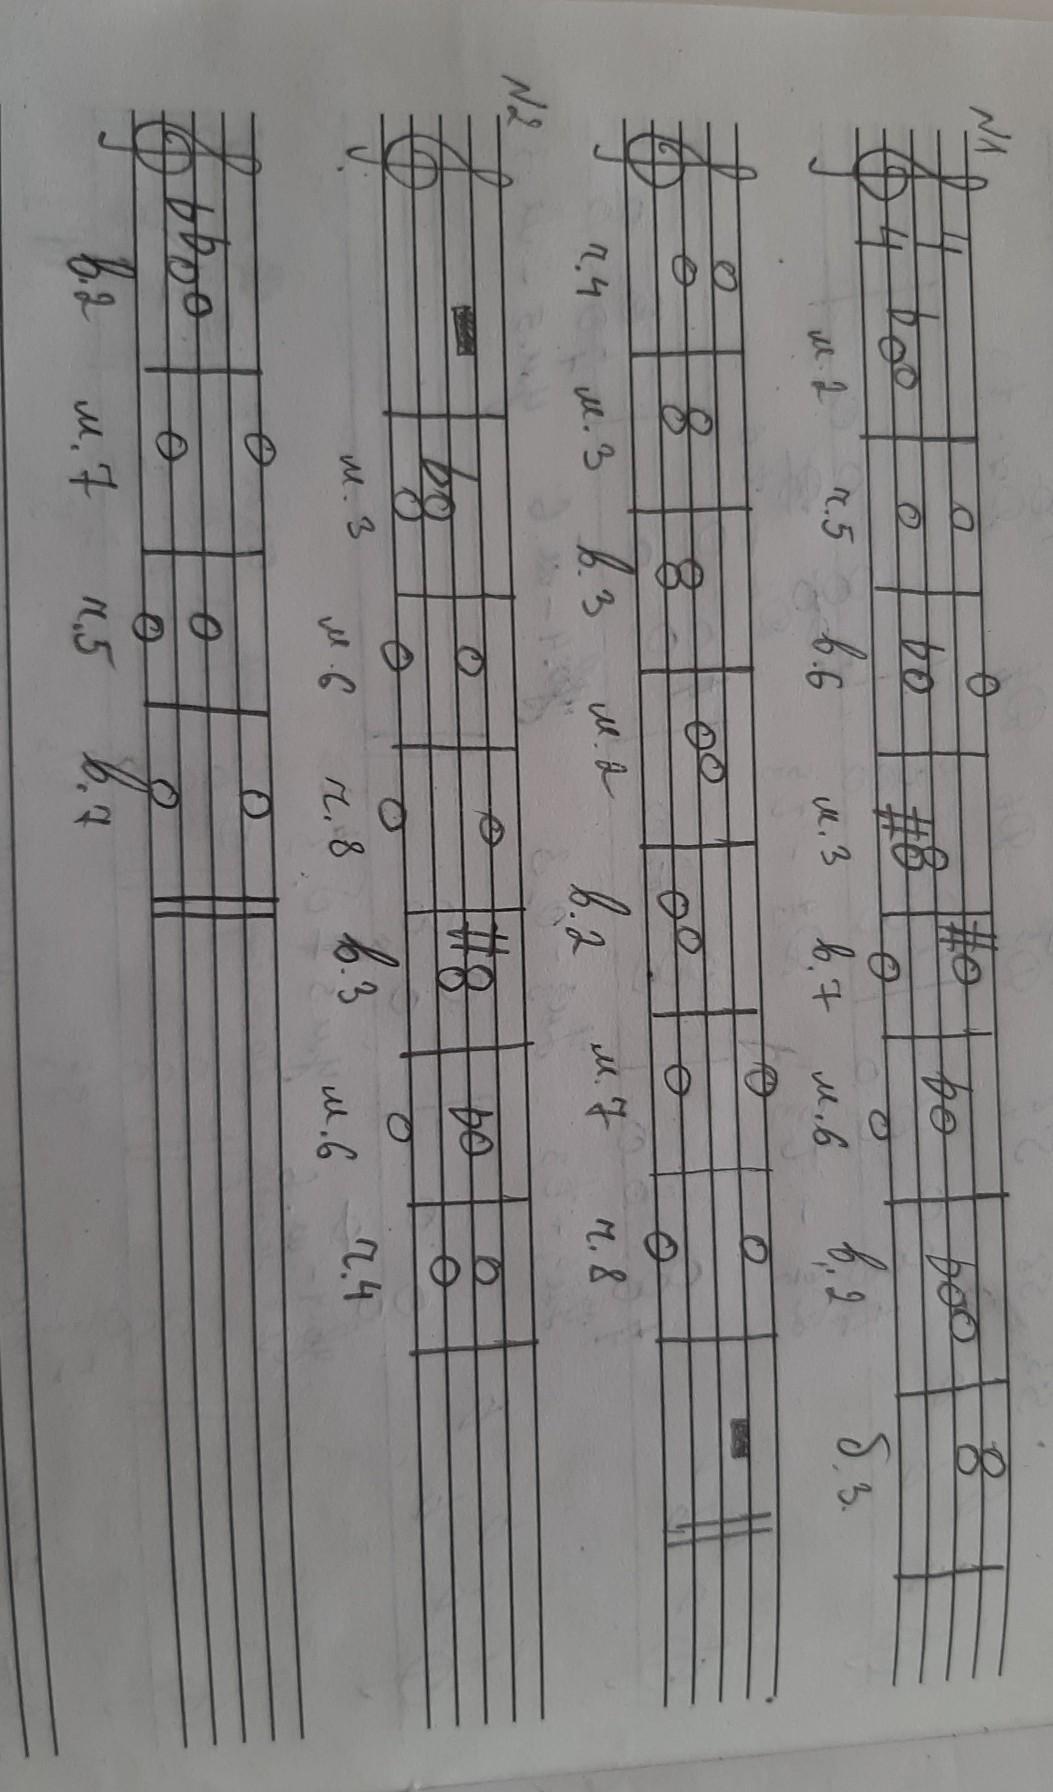 N1
4 4
м.2 ч.5 в.6 м.3 в.7 м.6 в.2 б.3.
ч.4 м.3 в.3 м.2 в.2 м.7 ч.8
N2
м.3 м.6 ч.8 в.3 м.6 ч.4
в.2 м.7 ч.5 в.7